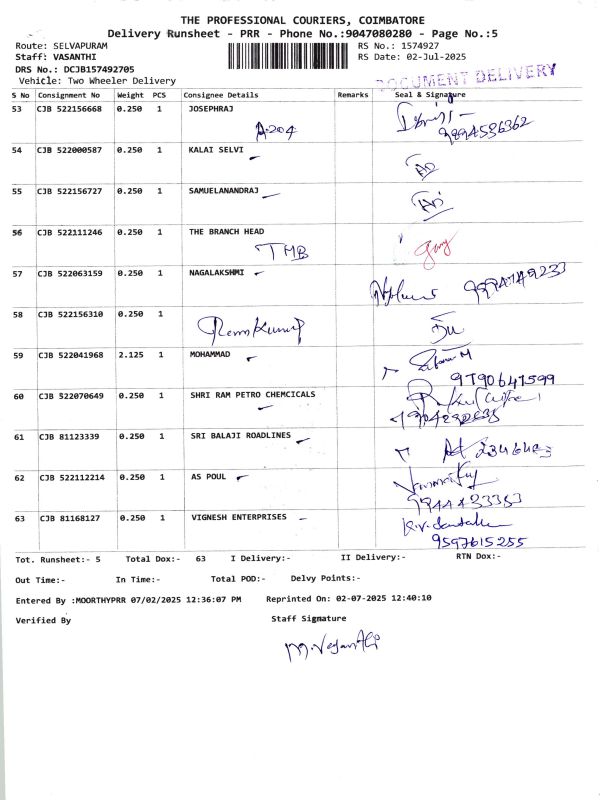 THE PROFESSIONAL COURIERS, COIMBATORE
Delivery Runsheet - PRR - Phone No.:9047080280 - Page No.:5
Route: SELVAPURAM RS No.: 1574927
Staff: VASANTHI RS Date: 02-Jul-2025
DRS No.: DCJB157492705
Vehicle: Two Wheeler Delivery
DOCUMENT DELIVERY
S No Consignment No Weight PCS Consignee Details Remarks Seal & Signature
53 CJB 522156668 0.250 1 JOSEPHRAJ
A-204 9894586362
54 CJB 522000587 0.250 1 KALAI SELVI
55 CJB 522156727 0.250 1 SAMUELANANDRAJ
56 CJB 522111246 0.250 1 THE BRANCH HEAD
TMB
57 CJB 522063159 0.250 1 NAGALAKSHMI
58 CJB 522156310 0.250 1
Ram Kumar
59 CJB 522041968 2.125 1 MOHAMMAD
9790647599
60 CJB 522070649 0.250 1 SHRI RAM PETRO CHEMCICALS
61 CJB 81123339 0.250 1 SRI BALAJI ROADLINES
62 CJB 522112214 0.250 1 AS POUL
9944433353
63 CJB 81168127 0.250 1 VIGNESH ENTERPRISES
9597615255
Tot. Runsheet:- 5 Total Dox:- 63 I Delivery:- II Delivery:- RTN Dox:-
Out Time:- In Time:- Total POD:- Delvy Points:-
Entered By :MOORTHYPRR 07/02/2025 12:36:07 PM Reprinted On: 02-07-2025 12:40:10
Verified By Staff Signature